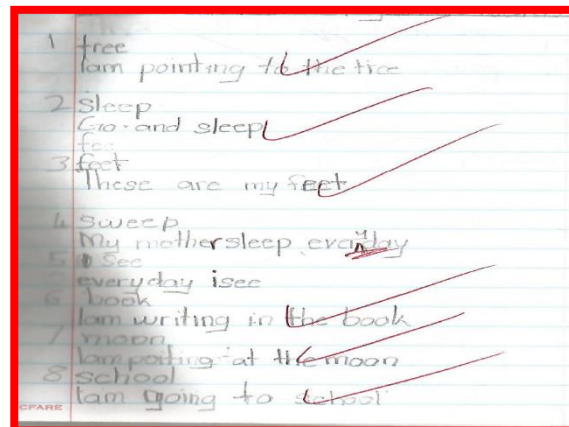 1 tree
Iam pointing to the tree
2 Sleep
Go and sleep
fee
3 feet
These are my feet
4 sweep
My mother sleep everyday
5 See
everyday isee
6 book
Iam writing in the book
7 moon
Iam poiting at the moon
8 school
Iam going to school
CFARE